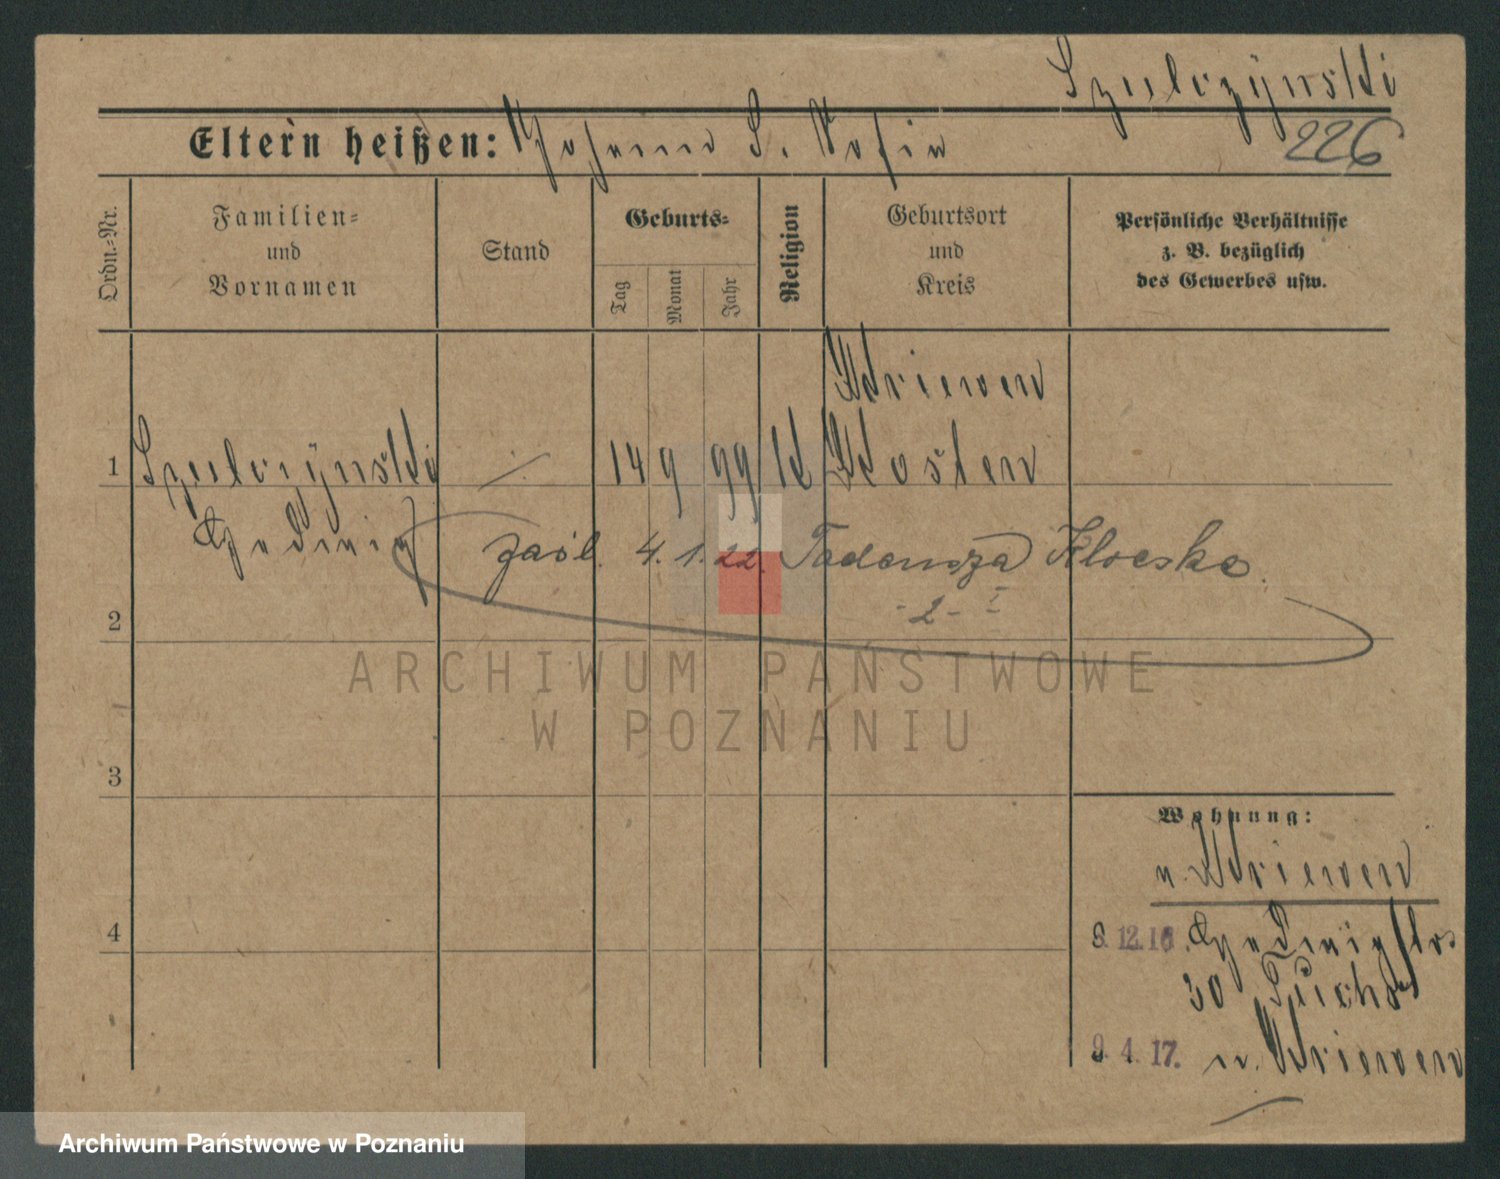 Szulczynski
226
Eltern heißen: Johann S. Sofia
Ordn.-Nr.
Familien-
und
Vornamen
Stand
Geburts-
Tag
Monat
Jahr
Religion
Geburtsort
und
Kreis
Persönliche Verhältnisse
z. B. bezüglich
des Gewerbes usw.
Kriewen
1 Szulczynski 14 9 99 K Kosten
Hedwig zaśl. 4.1.22. Tadeusza
-2- I
2
ARCHIWUM PAŃSTWOWE
W POZNANIU
3
Wohnung:
n. Kriewen
4
9.12.16. Hedwigstr.
30
9. 4. 17. n. Kriewen
Archiwum Państwowe w Poznaniu